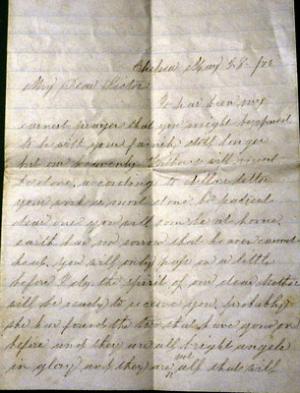 Chelsea May 28
My Dear Sister
It has been my
earnest prayer that you might
to be with your family still longer
but our heavenly Father's will must
be done, according to
your work is most done, be patient
dear one you will soon be at home
earth has no sorrow that heaven cannot
heal, you will only pass on a little
before I do, the spirit of our dear Mother
will be ready to receive you, probably
she has found the two that have gone on
before and they are all bright angels
in glory and they are not all that will